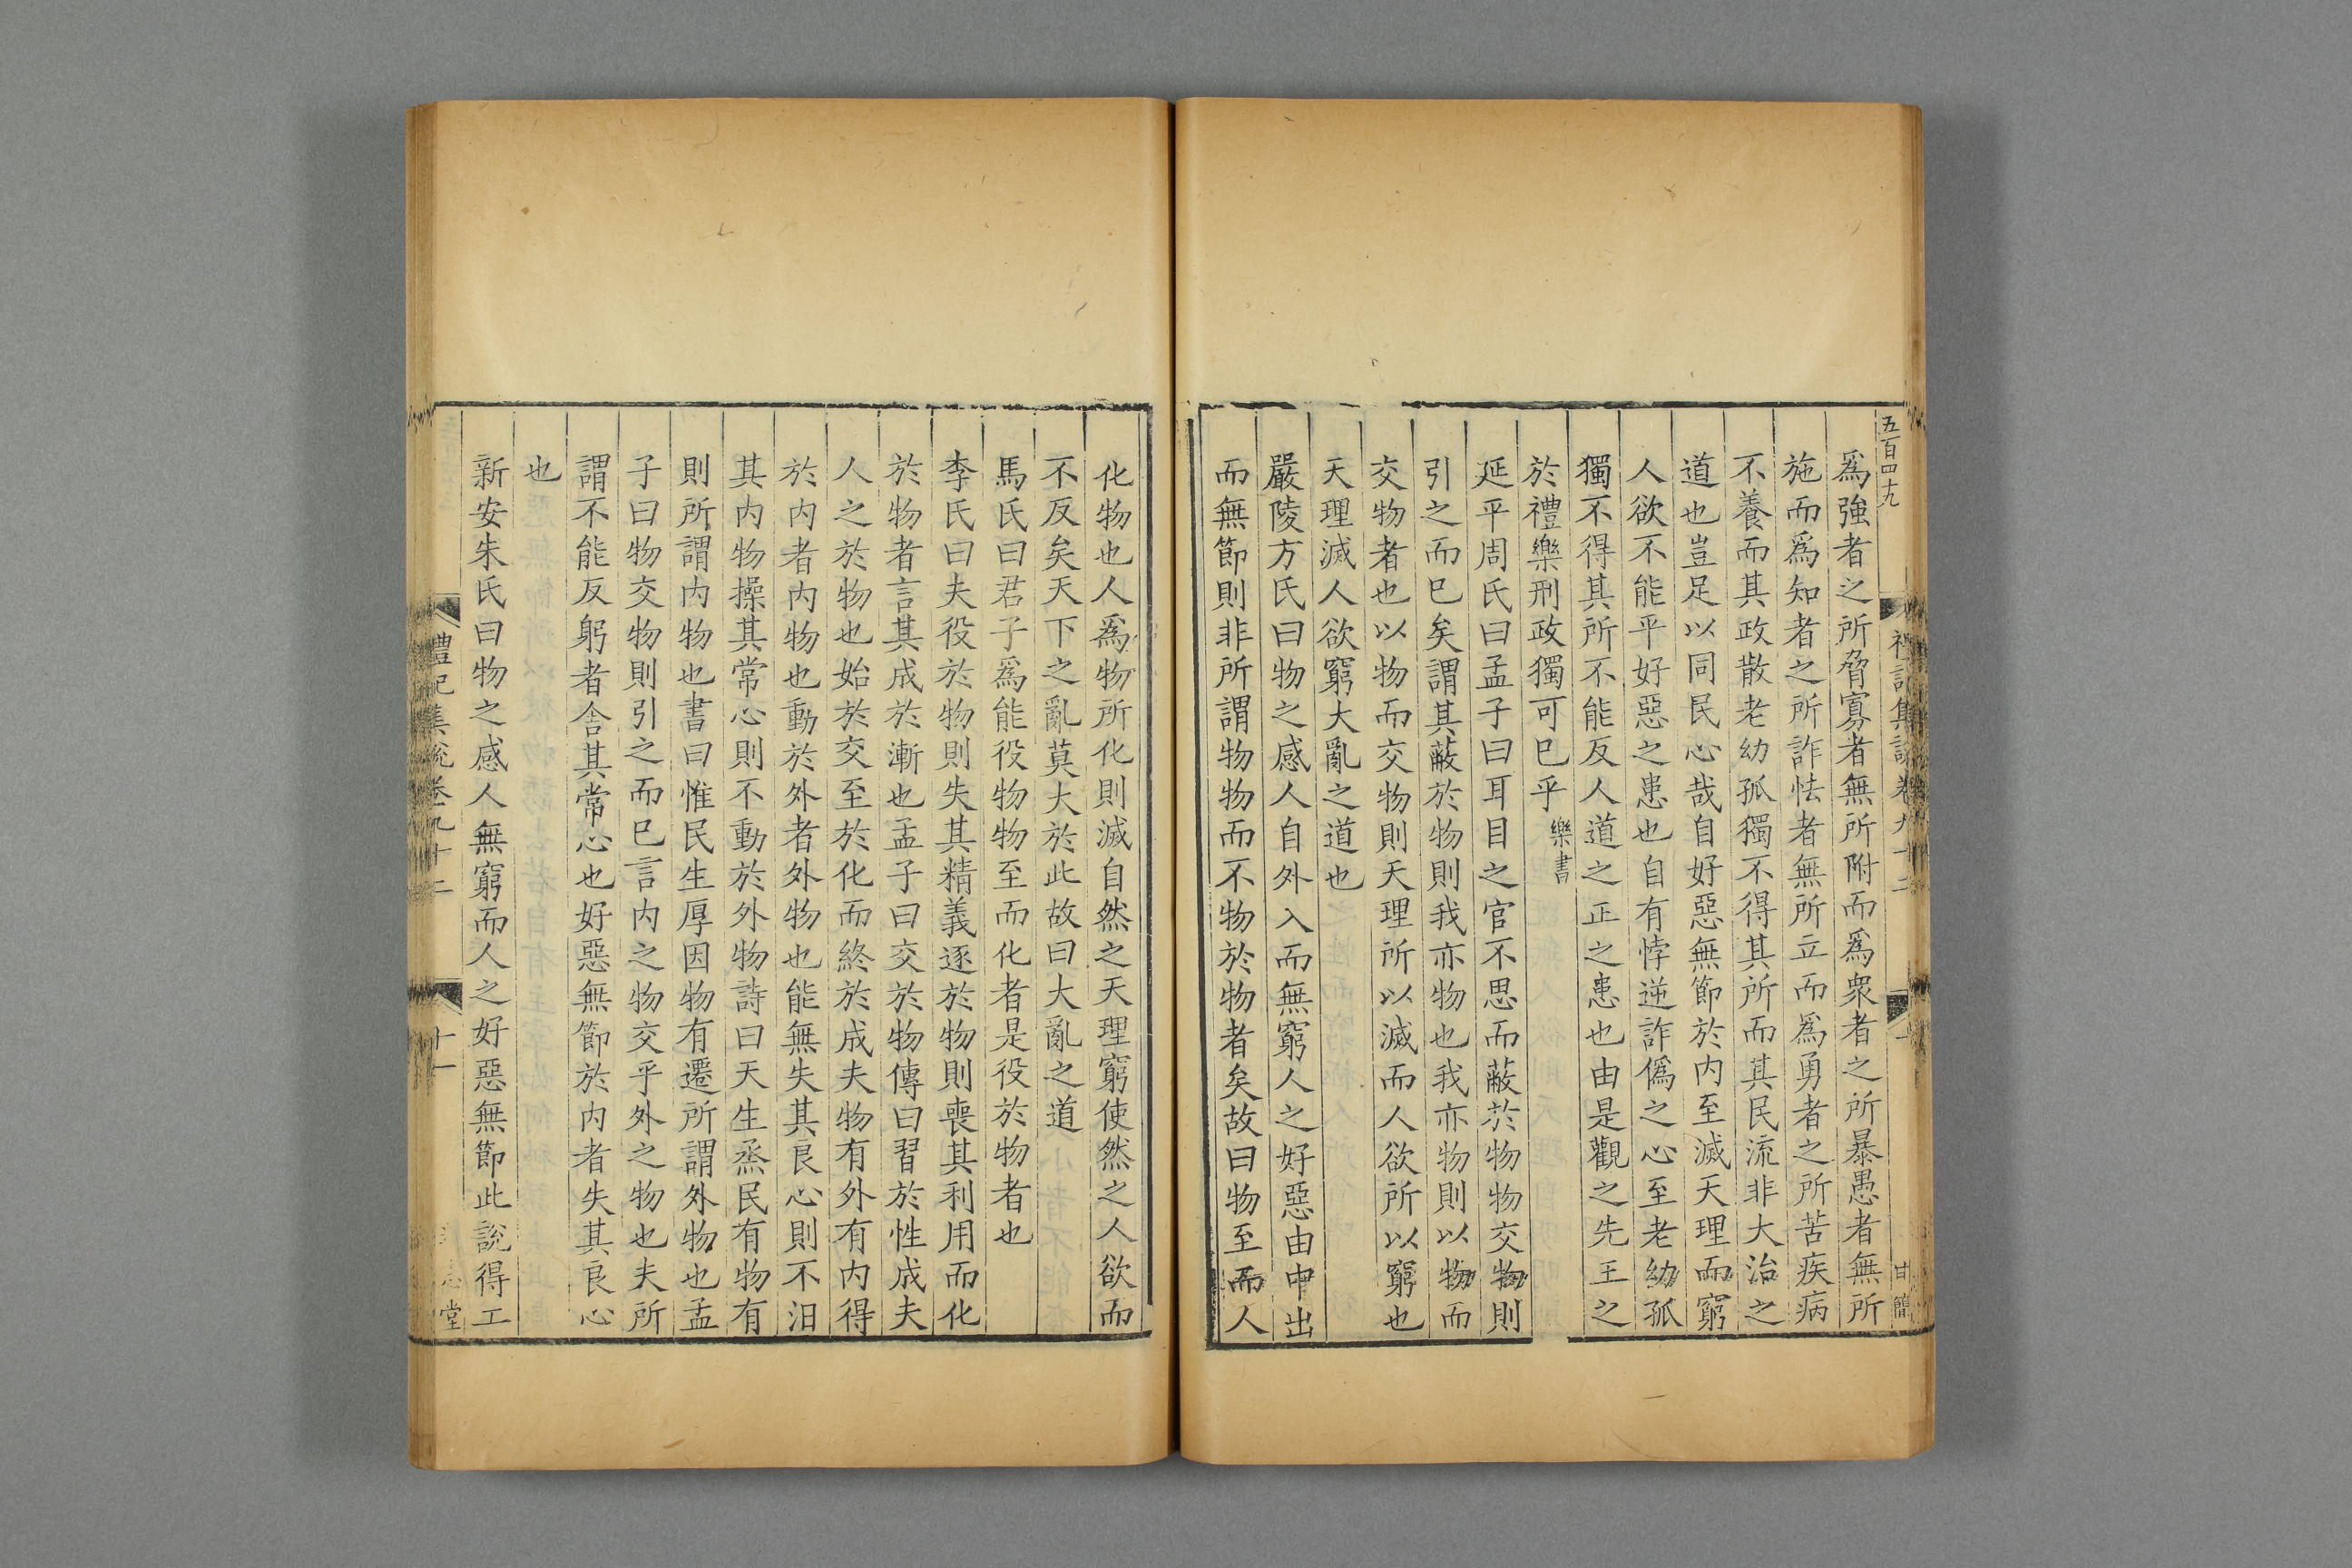 五百四十九
禮記集說卷九十二
十一
甘簡
爲強者之所脅寡者無所附而爲衆者之所暴愚者無所
施而爲知者之所詐怯者無所立而爲勇者之所苦疾病
不養而其政散老幼孤獨不得其所而其民流非大治之
道也豈足以同民心哉自好惡無節於内至滅天理而窮
人欲不能平好惡之患也自有悖逆詐僞之心至老幼孤
獨不得其所不能反人道之正之患也由是觀之先王之
於禮樂刑政獨可已乎 樂書
延平周氏曰孟子曰耳目之官不思而蔽於物物交物則
引之而已矣謂其蔽於物則我亦物也我亦物則以物而
交物者也以物而交物則天理所以滅而人欲所以窮也
天理滅人欲窮大亂之道也
嚴陵方氏曰物之感人自外入而無窮人之好惡由中出
而無節則非所謂物物而不物於物者矣故曰物至而人
化物也人爲物所化則滅自然之天理窮使然之人欲而
不反矣天下之亂莫大於此故曰大亂之道
馬氏曰君子爲能役物物至而化者是役於物者也
李氏曰夫役於物則失其精義逐於物則喪其利用而化
於物者言其成於漸也孟子曰交於物傳曰習於性成夫
人之於物也始於交至於化而終於成夫物有外有内得
於内者内物也動於外者外物也能無失其良心則不汨
其内物操其常心則不動於外物詩曰天生烝民有物有
則所謂内物也書曰惟民生厚因物有遷所謂外物也孟
子曰物交物則引之而已言内之物交乎外之物也夫所
謂不能反躬者舍其常心也好惡無節於内者失其良心
也
新安朱氏曰物之感人無窮而人之好惡無節此說得工
禮記集說卷九十二
十一
堂